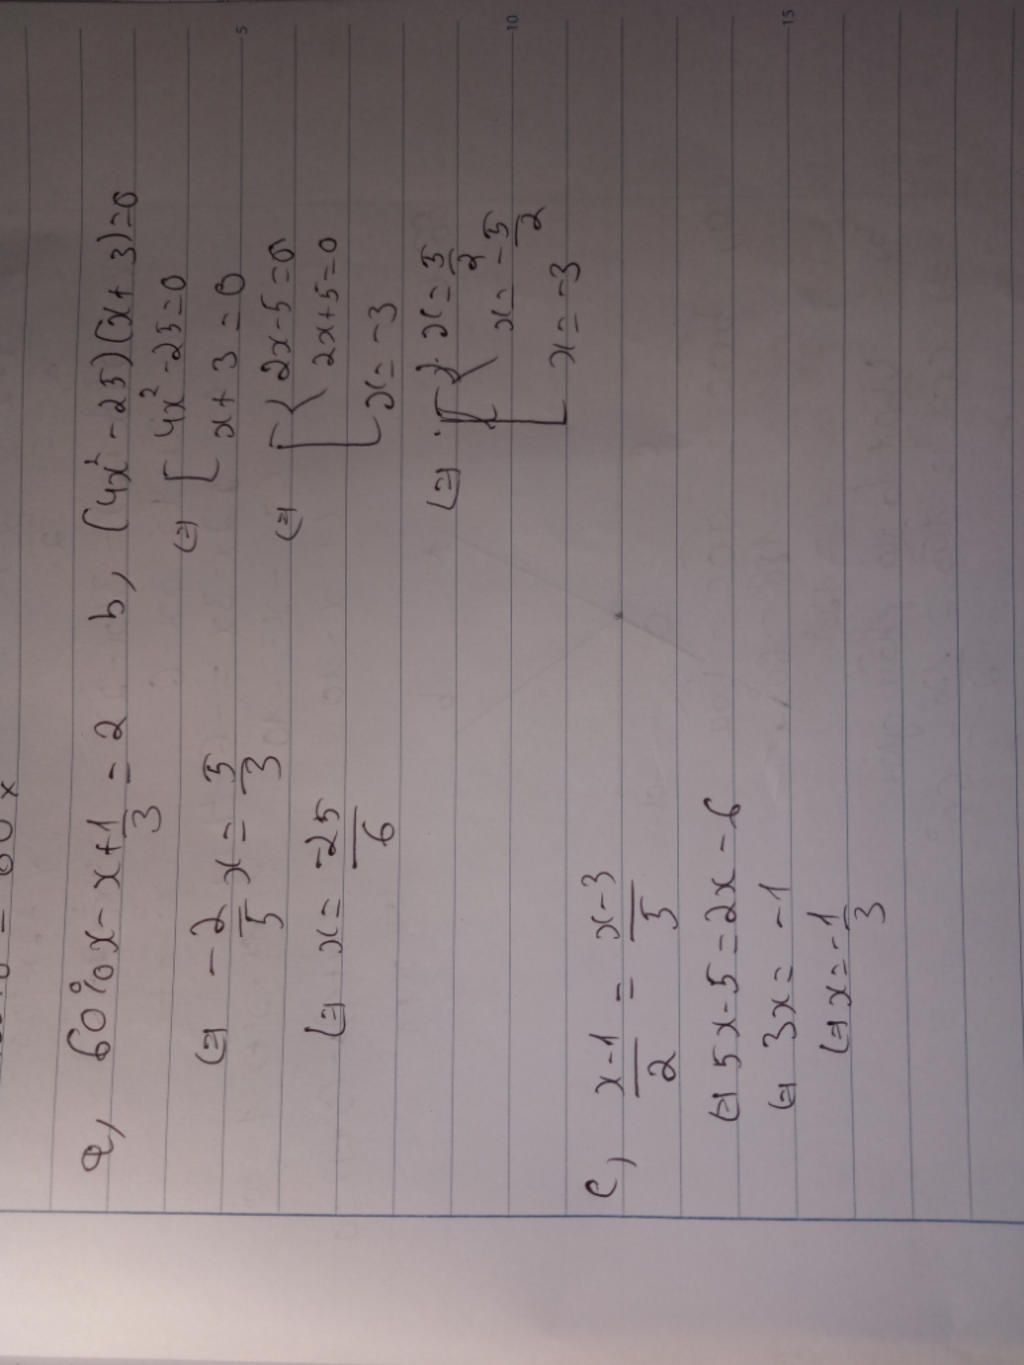 a, 60% x - x + 1/3 = 2
(=) -2/5 x = 5/3
(=) x = -25/6
b, (4x² - 25)(x + 3) = 0
(=) [ 4x² - 25 = 0
x + 3 = 0
(=) [ { 2x - 5 = 0
2x + 5 = 0
x = -3
(=) [ { x = 5/2
x = -5/2
x = -3
c, x-1/2 = x-3/5
(=) 5x - 5 = 2x - 6
(=) 3x = -1
(=) x = -1/3
5
10
15